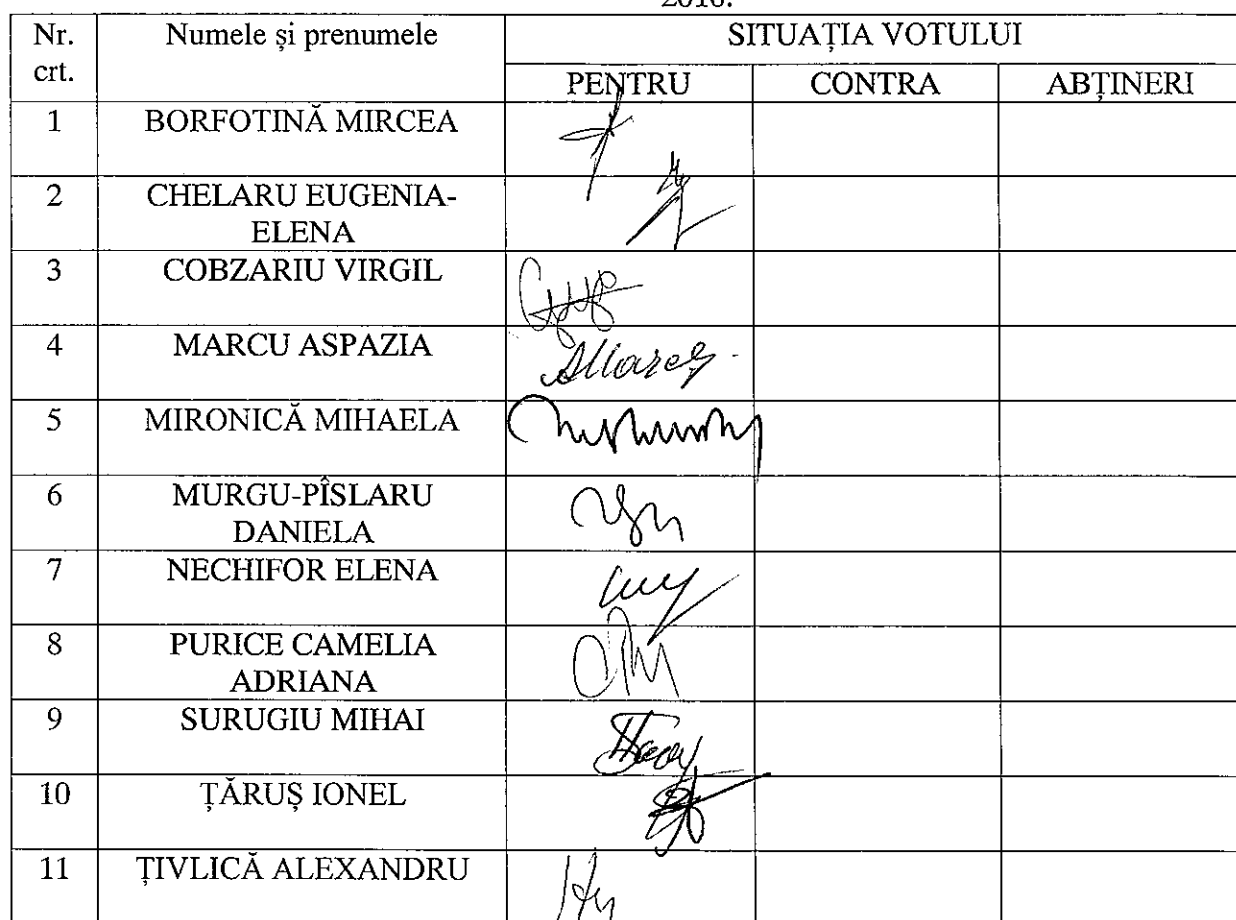 2016.
Nr. crt. Numele și prenumele SITUAȚIA VOTULUI
PENTRU CONTRA ABȚINERI
1 BORFOTINĂ MIRCEA
2 CHELARU EUGENIA-
ELENA
3 COBZARIU VIRGIL
4 MARCU ASPAZIA
5 MIRONICĂ MIHAELA
6 MURGU-PÎSLARU
DANIELA
7 NECHIFOR ELENA
8 PURICE CAMELIA
ADRIANA
9 SURUGIU MIHAI
10 ȚĂRUȘ IONEL
11 ȚIVLICĂ ALEXANDRU